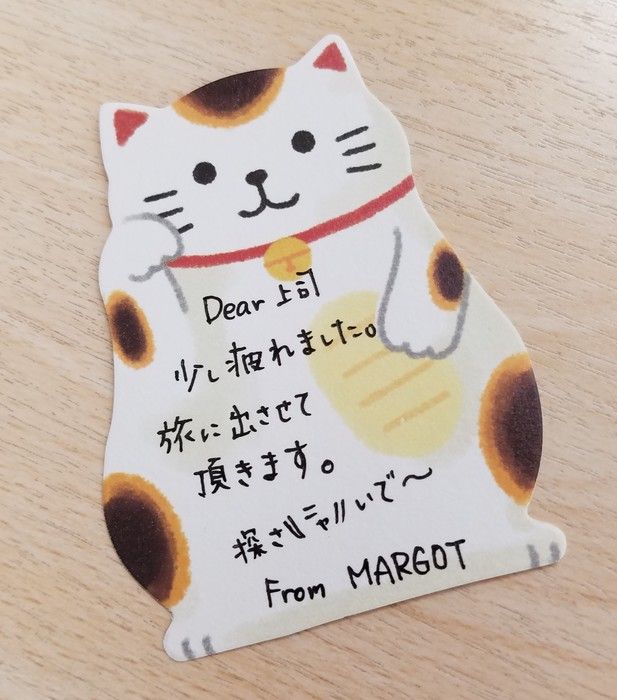 Dear 上司
少し疲れました。
旅に出させて
頂きます。
探さニャいで〜
From MARGOT